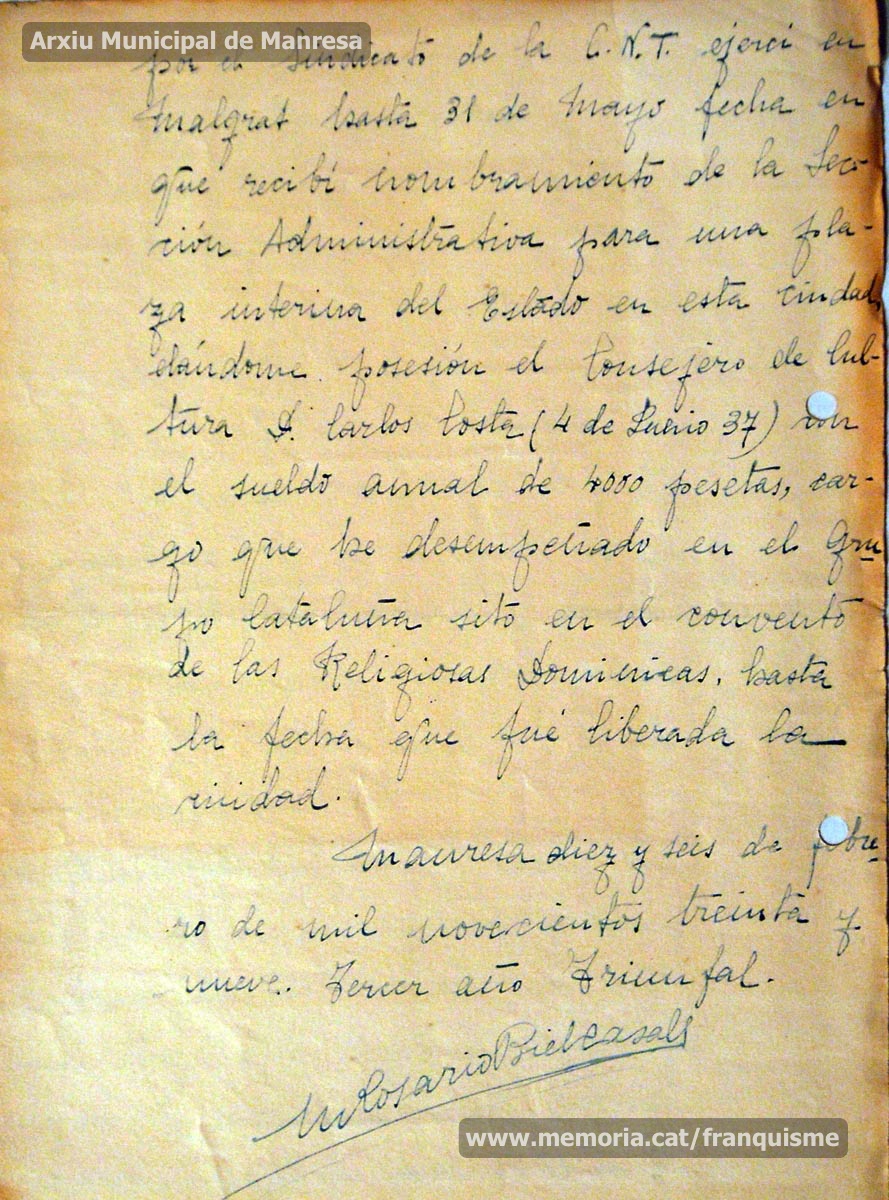 Arxiu Municipal de Manresa
por el Sindicato de la C.N.T. ejercí en
Malgrat hasta 31 de Mayo fecha en
que recibí nombramiento de la Sec-
ción Administrativa para una pla-
za interina del Estado en esta ciudad,
dándome posesión el Consejero de Cul-
tura D. Carlos Costa (4 de Junio 37) con
el sueldo anual de 4000 pesetas, car-
go que he desempeñado en el Gru-
po Cataluña sito en el convento
de las Religiosas Dominicas, hasta
la fecha que fué liberada la
ciudad.
Manresa diez y seis de febre-
ro de mil novecientos treinta y
nueve. Tercer año Triunfal.
M Rosario Biel Casals
www.memoria.cat/franquisme